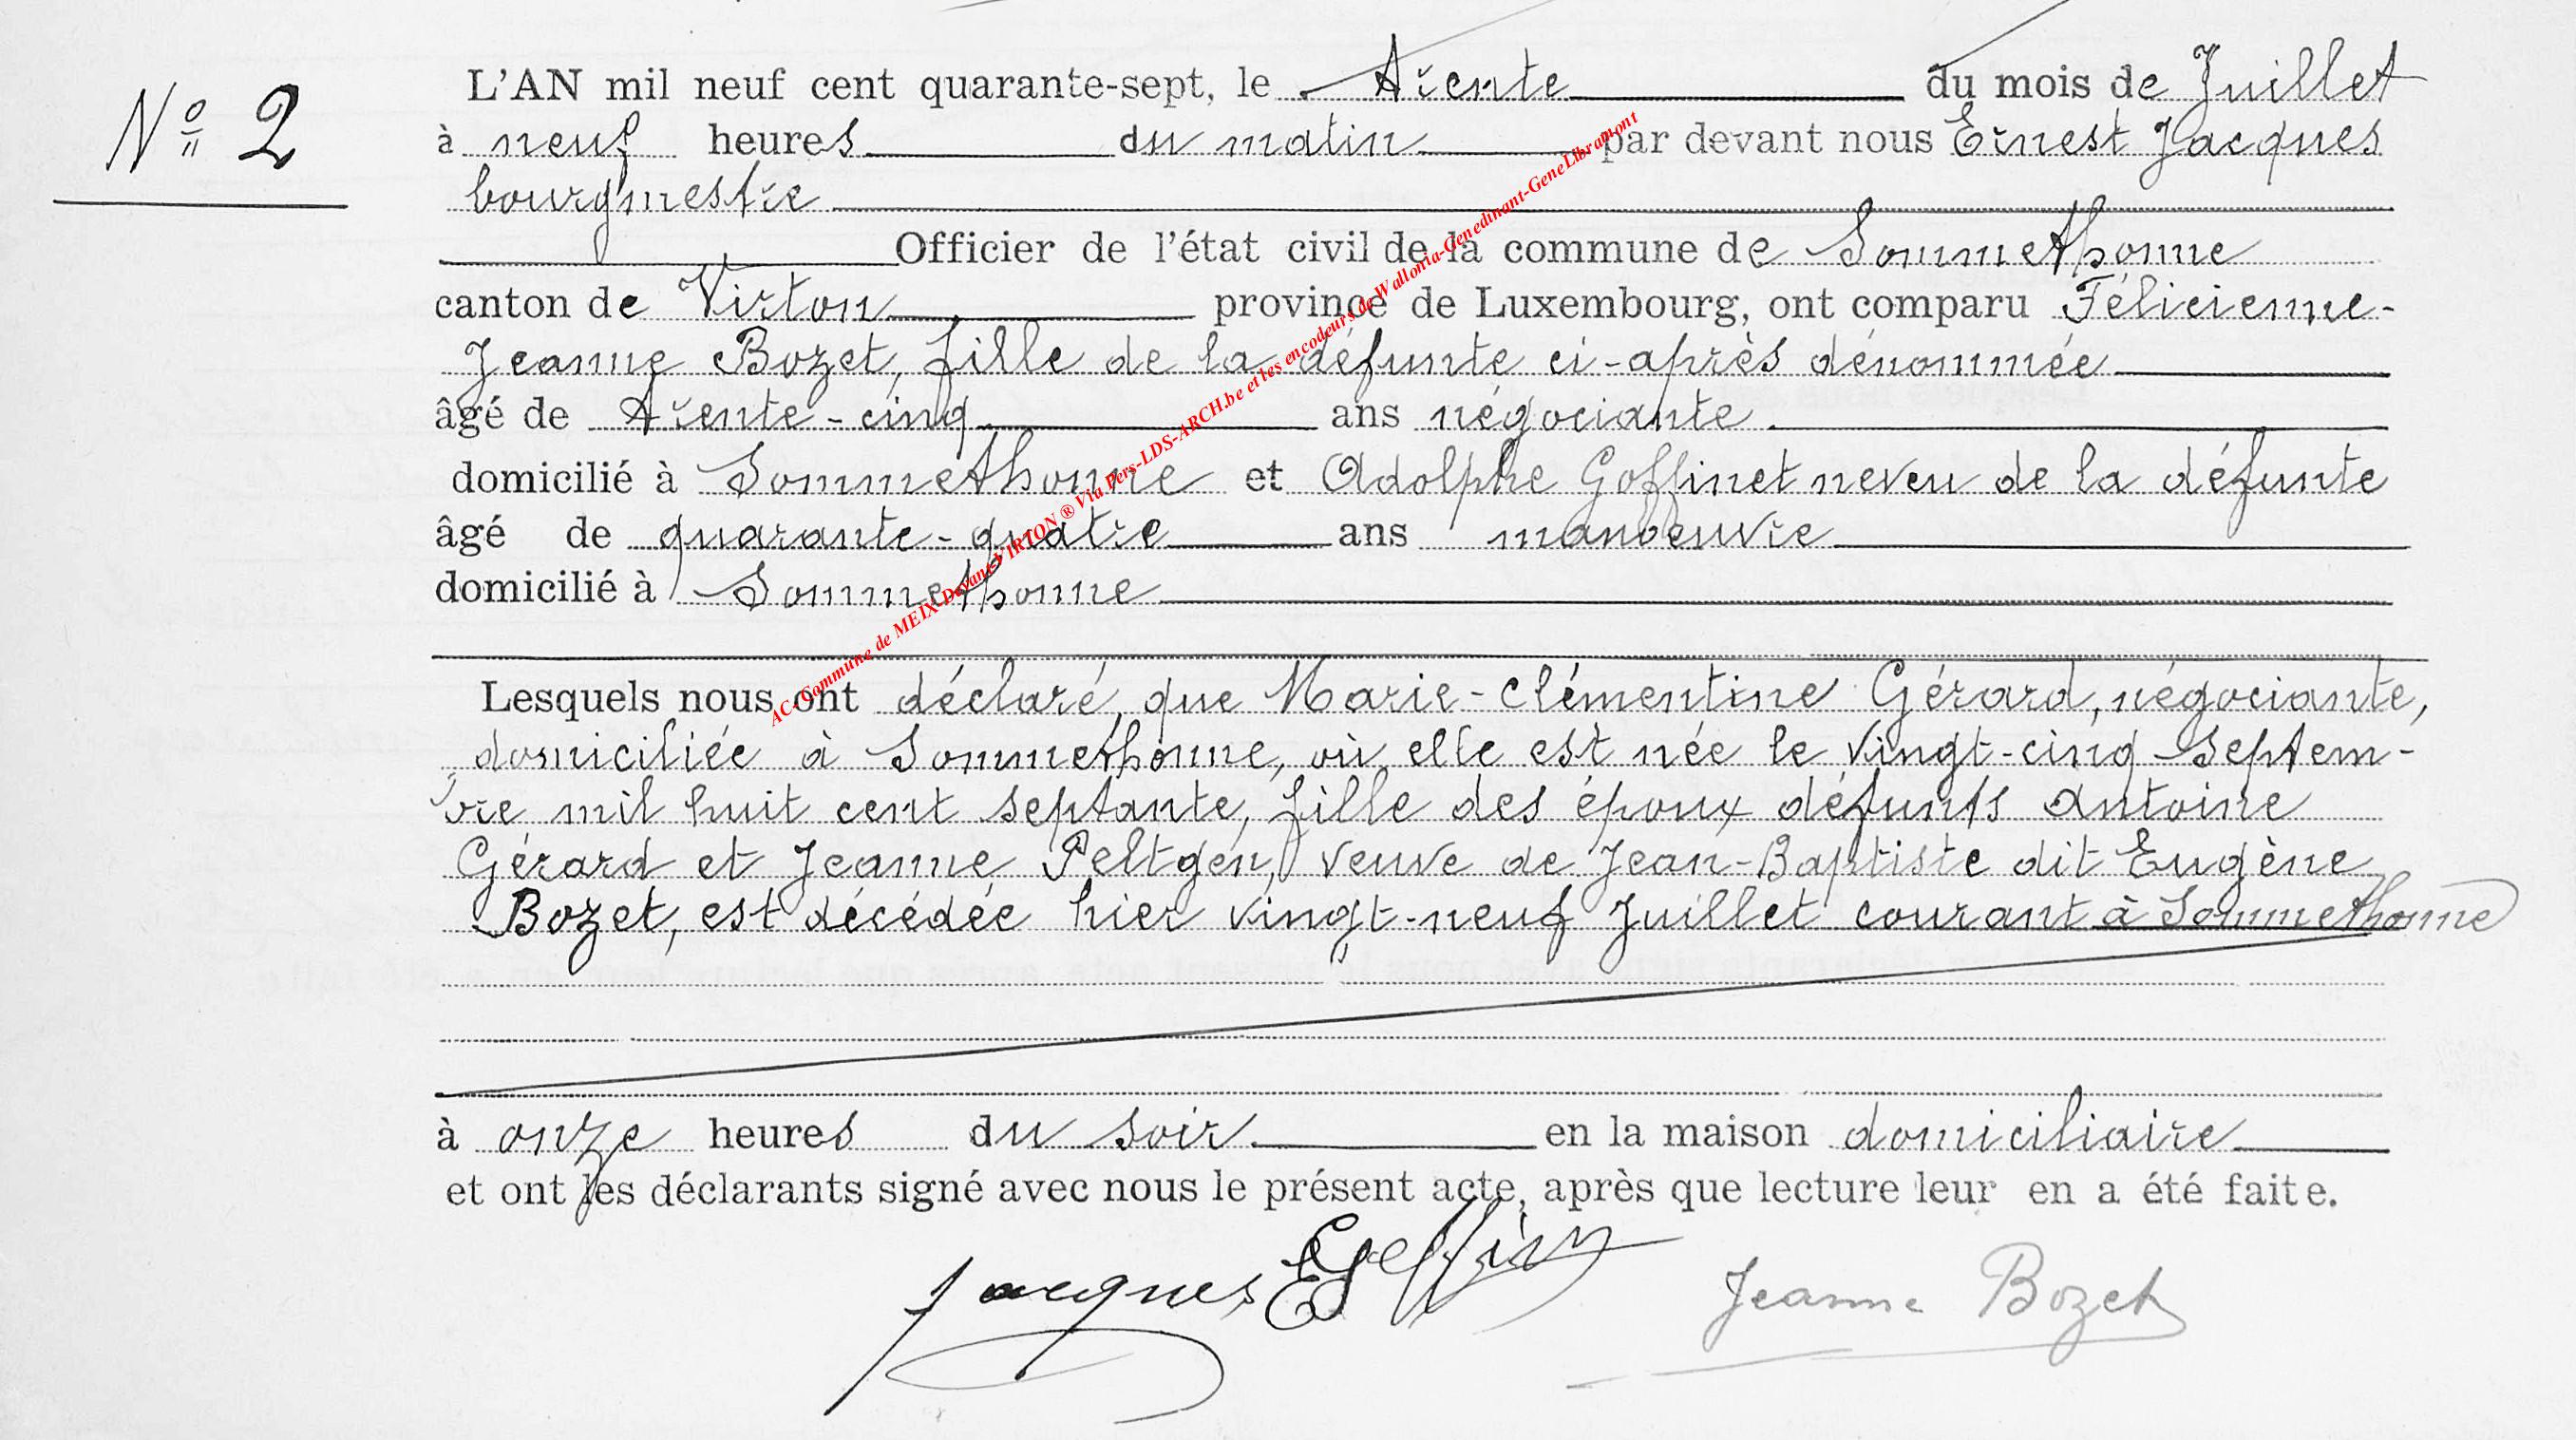 N° 2
L'AN mil neuf cent quarante-sept, le trente du mois de Juillet
à neuf heures du matin par devant nous Ernest Jacques
bourgmestre
Officier de l'état civil de la commune de Sommethonne
canton de Virton province de Luxembourg, ont comparu Félicienne-
Jeanne Bozet, fille de la défunte ci-après dénommée
âgé de trente-cinq ans négociante
domicilié à Sommethonne et Adolphe Goffinet neveu de la défunte
âgé de quarante-quatre ans manoeuvre
domicilié à Sommethonne
Lesquels nous ont déclaré que Marie-Clémentine Gérard, négociante,
domiciliée à Sommethonne, où elle est née le vingt-cinq Septem-
bre mil huit cent septante, fille des époux défunts Antoine
Gérard et Jeanne Peltgen, veuve de Jean-Baptiste dit Eugène
Bozet, est décédée hier vingt-neuf Juillet courant à Sommethonne
à onze heures du soir en la maison domiciliaire
et ont les déclarants signé avec nous le présent acte, après que lecture leur en a été faite.
Jacques E Goffinet Jeanne Bozet
AC-Commune de MEIX-Devant-VIRTON ® Via Pers-LDS-ARCH.be et les encodeurs de Wallonia-Genedinant-GeneLibramont